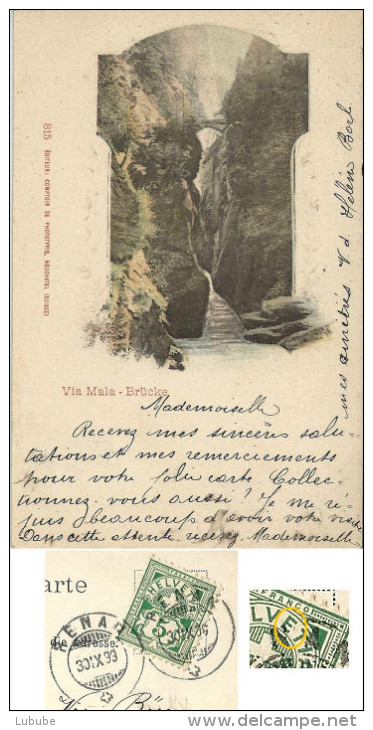 815 ÉDITEUR: COMPTOIR DE PHOTOTYPIE, NEUCHATEL (SUISSE)
Via Mala - Brücke
Mademoiselle
Recevez mes sincères salu-
tations et mes remerciements
pour votre jolie carte. Collec-
tionnez-vous aussi? Je me ré-
jouis beaucoup d'avoir votre visite
Dans cette attente recevez Mademoiselle
mes amitiés V d Hélène
arte
HELVETIA
5
FRANCO
Adresse.
30.IX.99
HELVE
FRANCO
Lubube
www.delcampe.net